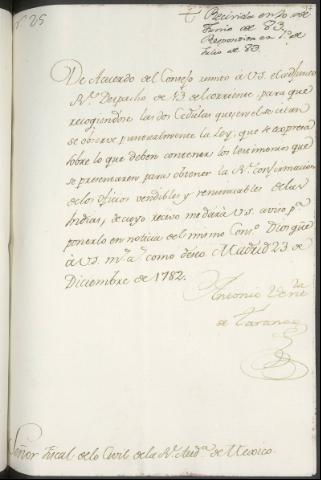 Nº 25
Recivida en 10 de
Junio de 83.
Respondida en 1º de
Julio de 83.
De Acuerdo del Consejo remito à V.S. el adjunto
Rl. Despacho de 13 del corriente, para que
recogiendose las dos Cedulas que en él se citan
se observe puntualmente la Ley, que se expresa
sobre lo que deben contener los testimonios que
se presentaren para obtener la Rl. confirmacion
de los oficios vendibles y renunciables de las
Indias, de cuyo recivo me dará V.S. aviso pª
ponerlo en noticia del mismo Consº. Dios gūe
à V.S. ms. as. como deseo Madrid 23 de
Diciembre de 1782.
Antonio Ventª
de Taranco
Señor Fiscal de lo Civil de la Rl. Audª de Mexico.